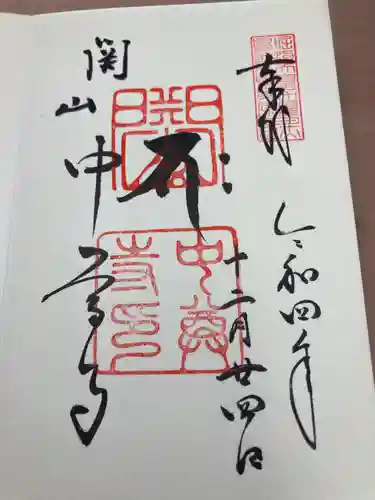 奉拝
令和四年
十二月廿四日
関山
中尊寺
中尊
寺印